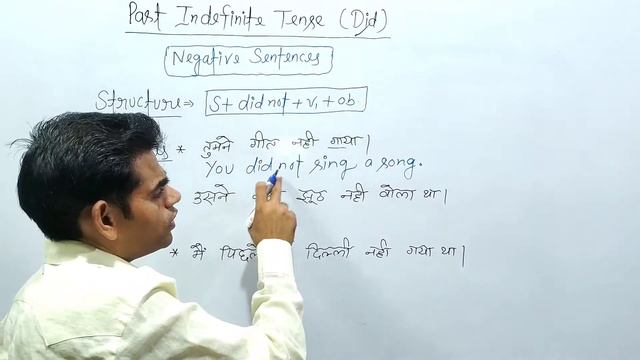 Past Indefinite Tense (Did)
Negative Sentences
Structure ⇒ S + did not + V₁ + ob
* तुमने गीत नही गाया।
You did not sing a song.
उसने झूठ नही बोला था।
* मैं दिल्ली नही गया था।